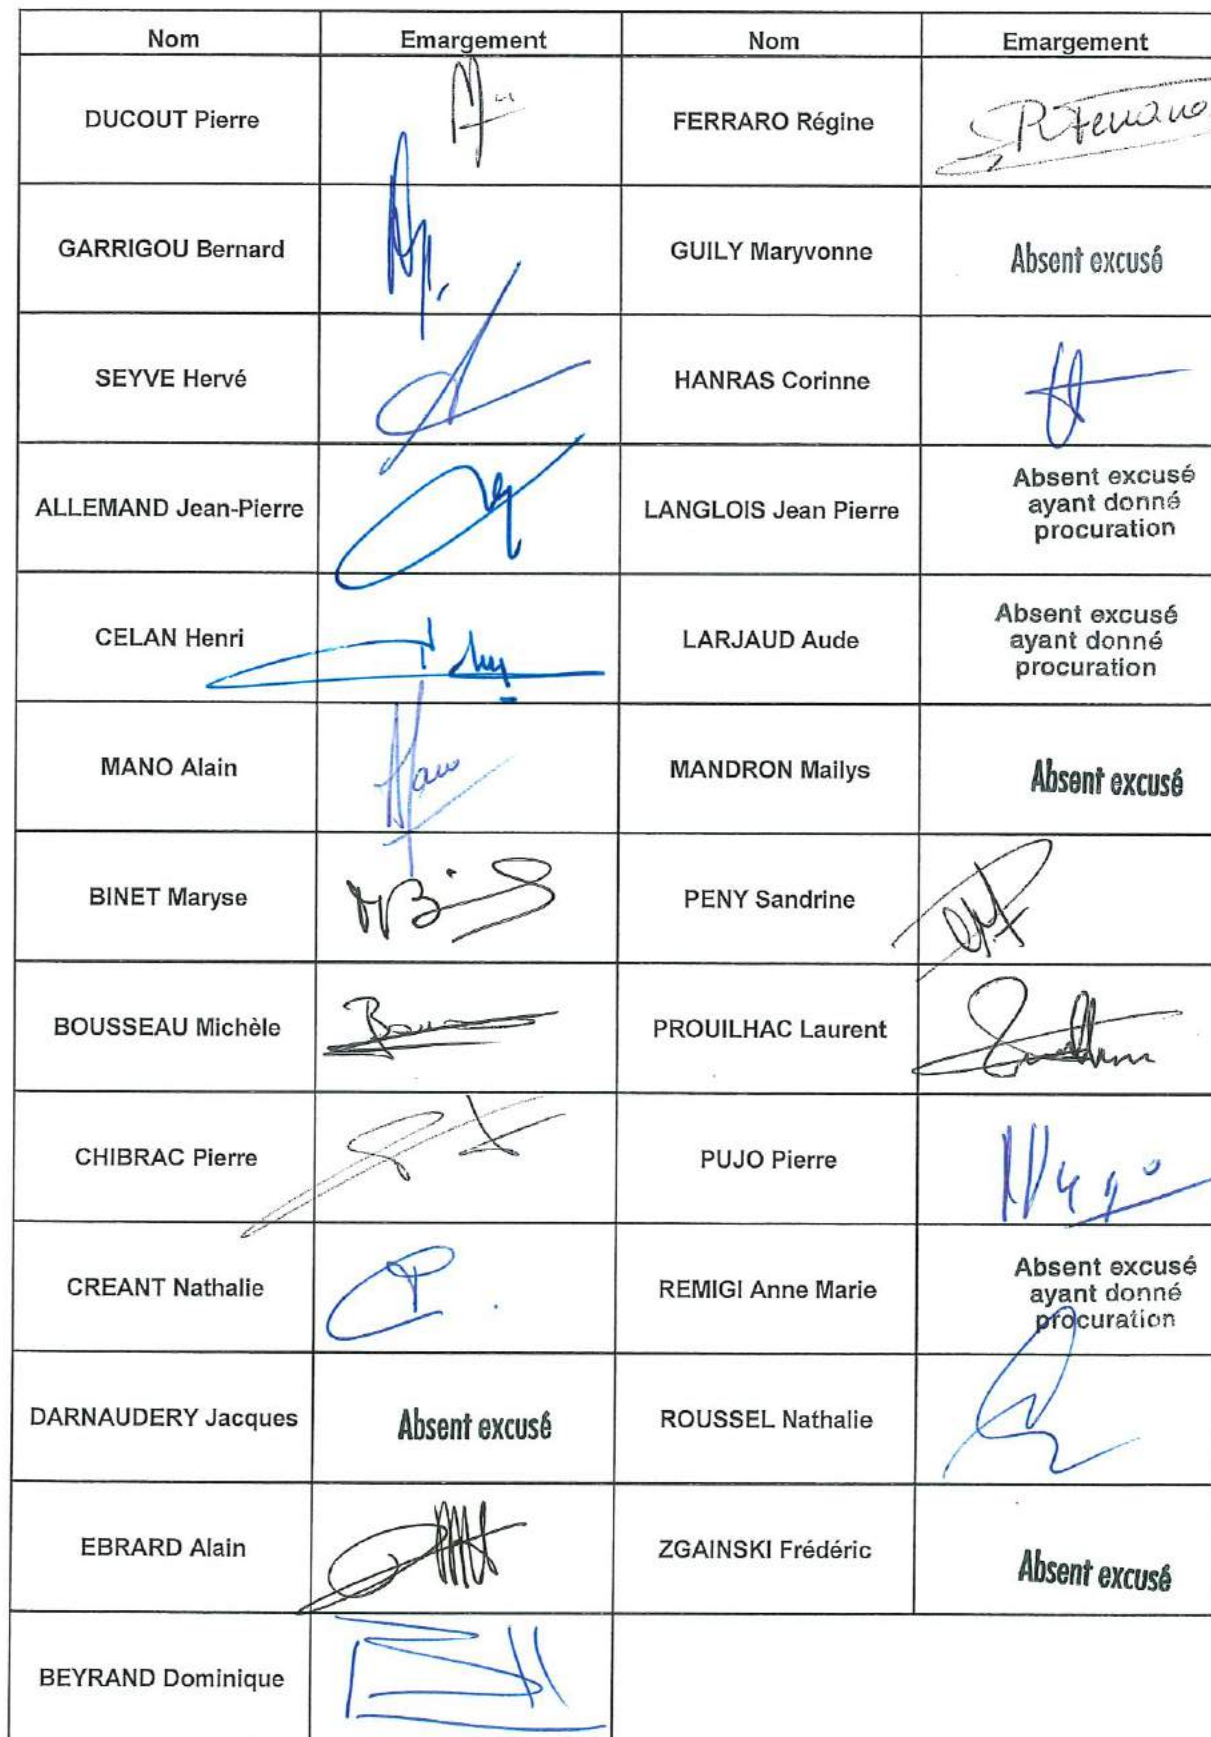 Nom Emargement Nom Emargement
DUCOUT Pierre FERRARO Régine R Ferraro
GARRIGOU Bernard GUILY Maryvonne Absent excusé
SEYVE Hervé HANRAS Corinne
ALLEMAND Jean-Pierre LANGLOIS Jean Pierre Absent excusé
ayant donné
procuration
CELAN Henri LARJAUD Aude Absent excusé
ayant donné
procuration
MANO Alain Mano MANDRON Mailys Absent excusé
BINET Maryse PENY Sandrine
BOUSSEAU Michèle PROUILHAC Laurent
CHIBRAC Pierre PUJO Pierre
CREANT Nathalie REMIGI Anne Marie Absent excusé
ayant donné
procuration
DARNAUDERY Jacques Absent excusé ROUSSEL Nathalie
EBRARD Alain ZGAINSKI Frédéric Absent excusé
BEYRAND Dominique